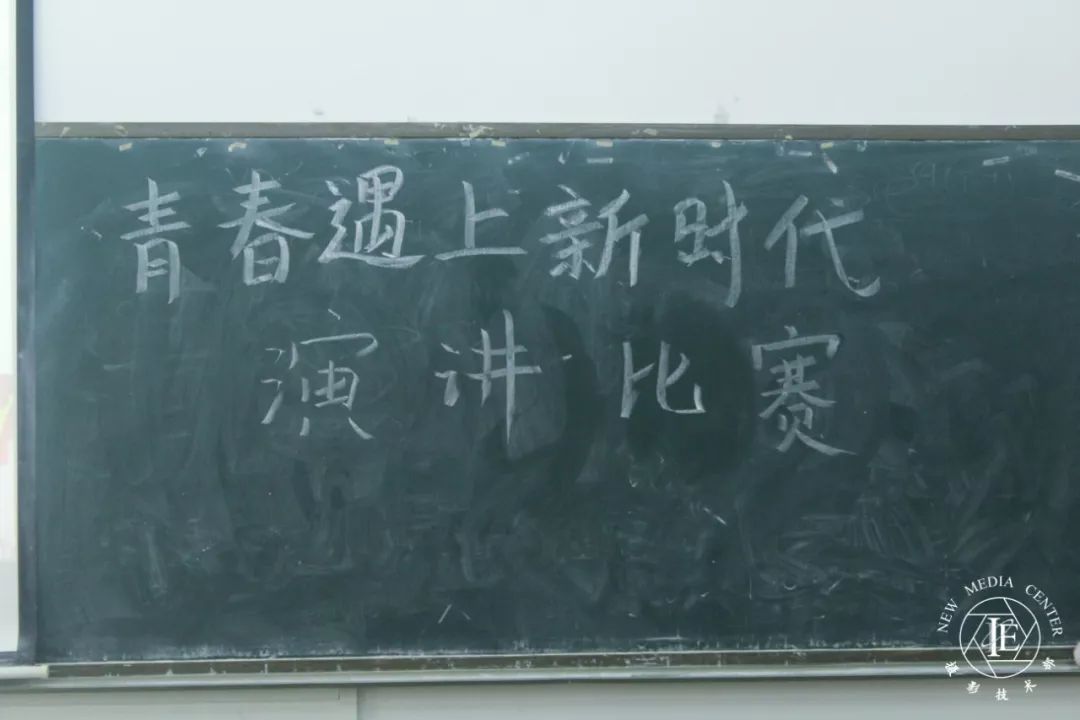 青春遇上新时代
演讲比赛
NEW MEDIA CENTER
IE